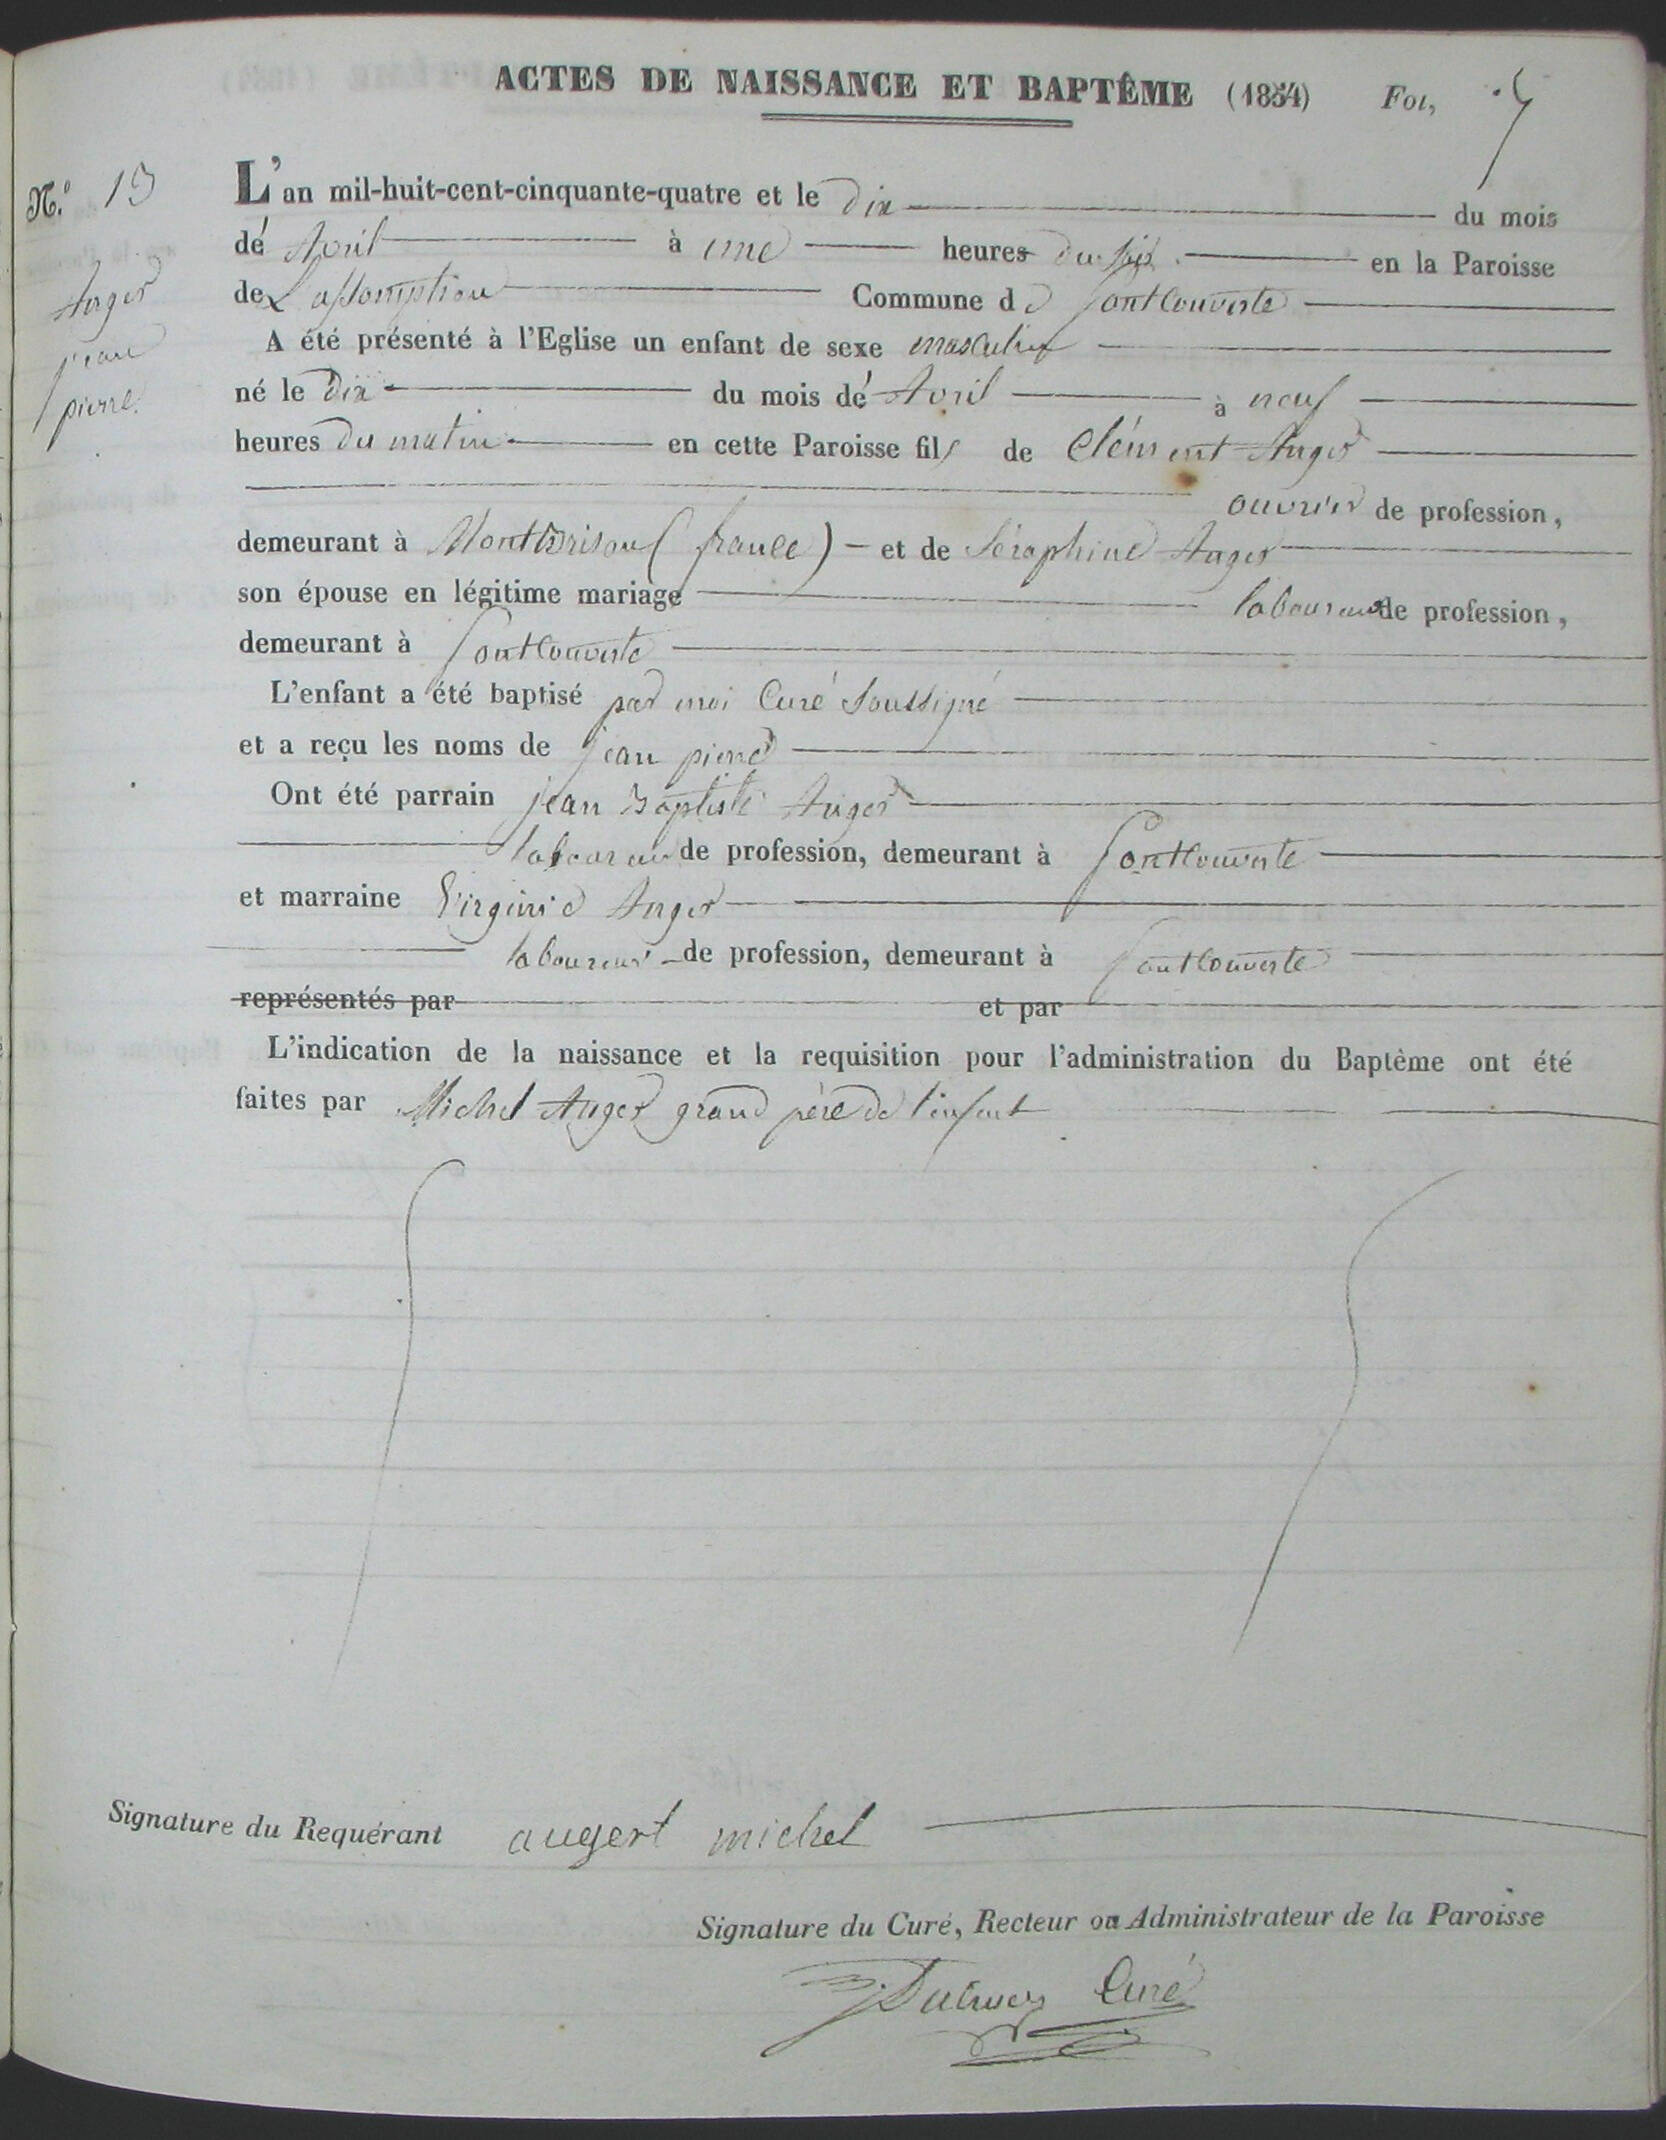 ACTES DE NAISSANCE ET BAPTÊME (1854) Fol, 7
N.º 13
Auger
jean
pierre.
L'an mil-huit-cent-cinquante-quatre et le dix du mois
de Avril à une heures du soir en la Paroisse
de L'assomption Commune de Fontcouverte
A été présenté à l'Eglise un enfant de sexe masculin
né le dix du mois de Avril à neuf
heures du matin en cette Paroisse fils de Clément Auger
ouvrier de profession,
demeurant à Montbrison (france) - et de Séraphine Auger
son épouse en légitime mariage laboureur de profession,
demeurant à Fontcouverte
L'enfant a été baptisé par moi Curé Soussigné
et a reçu les noms de jean pierre
Ont été parrain jean Baptiste Auger
laboureur de profession, demeurant à Fontcouverte
et marraine Virginie Auger
laboureur de profession, demeurant à Fontcouverte
représentés par et par
L'indication de la naissance et la requisition pour l'administration du Baptême ont été
faites par Michel Auger grand père de l'enfant
Signature du Requérant augert michel
Signature du Curé, Recteur ou Administrateur de la Paroisse
Curé